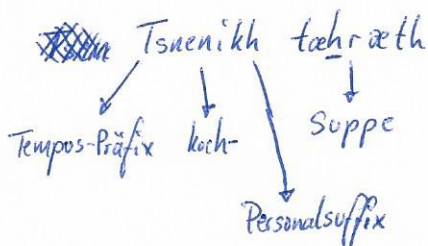 Tsnenikh tæhræth
Tempos-Präfix koch- Suppe
Personalsuffix